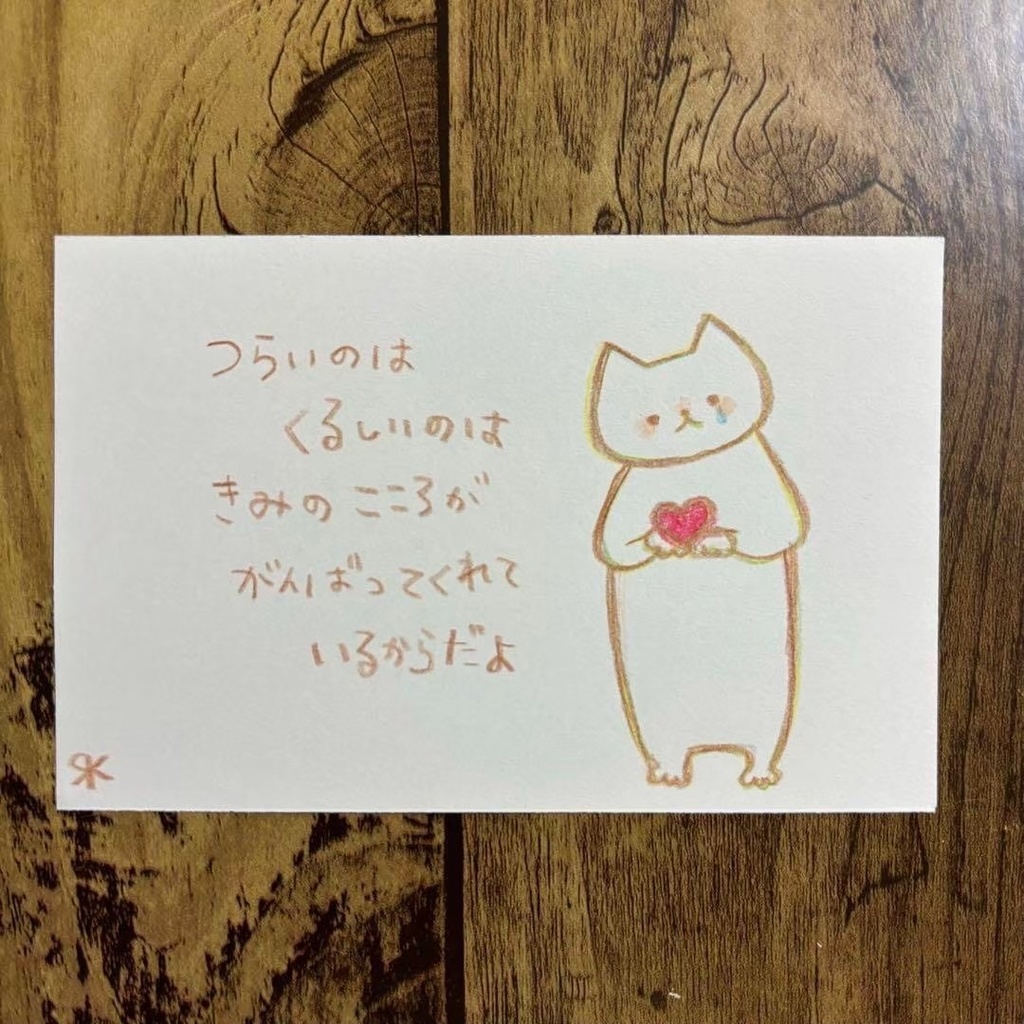 つらいのは
くるしいのは
きみのこころが
がんばってくれて
いるからだよ